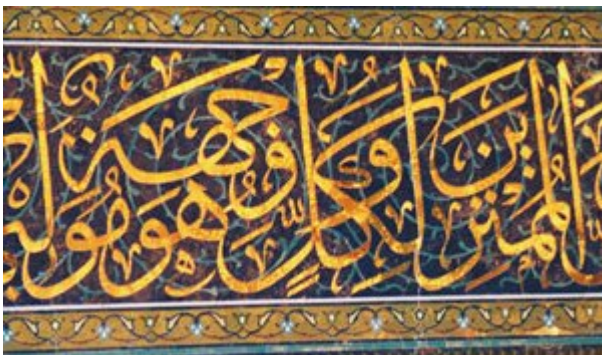 الممترين ولكل وجهة هو مولي